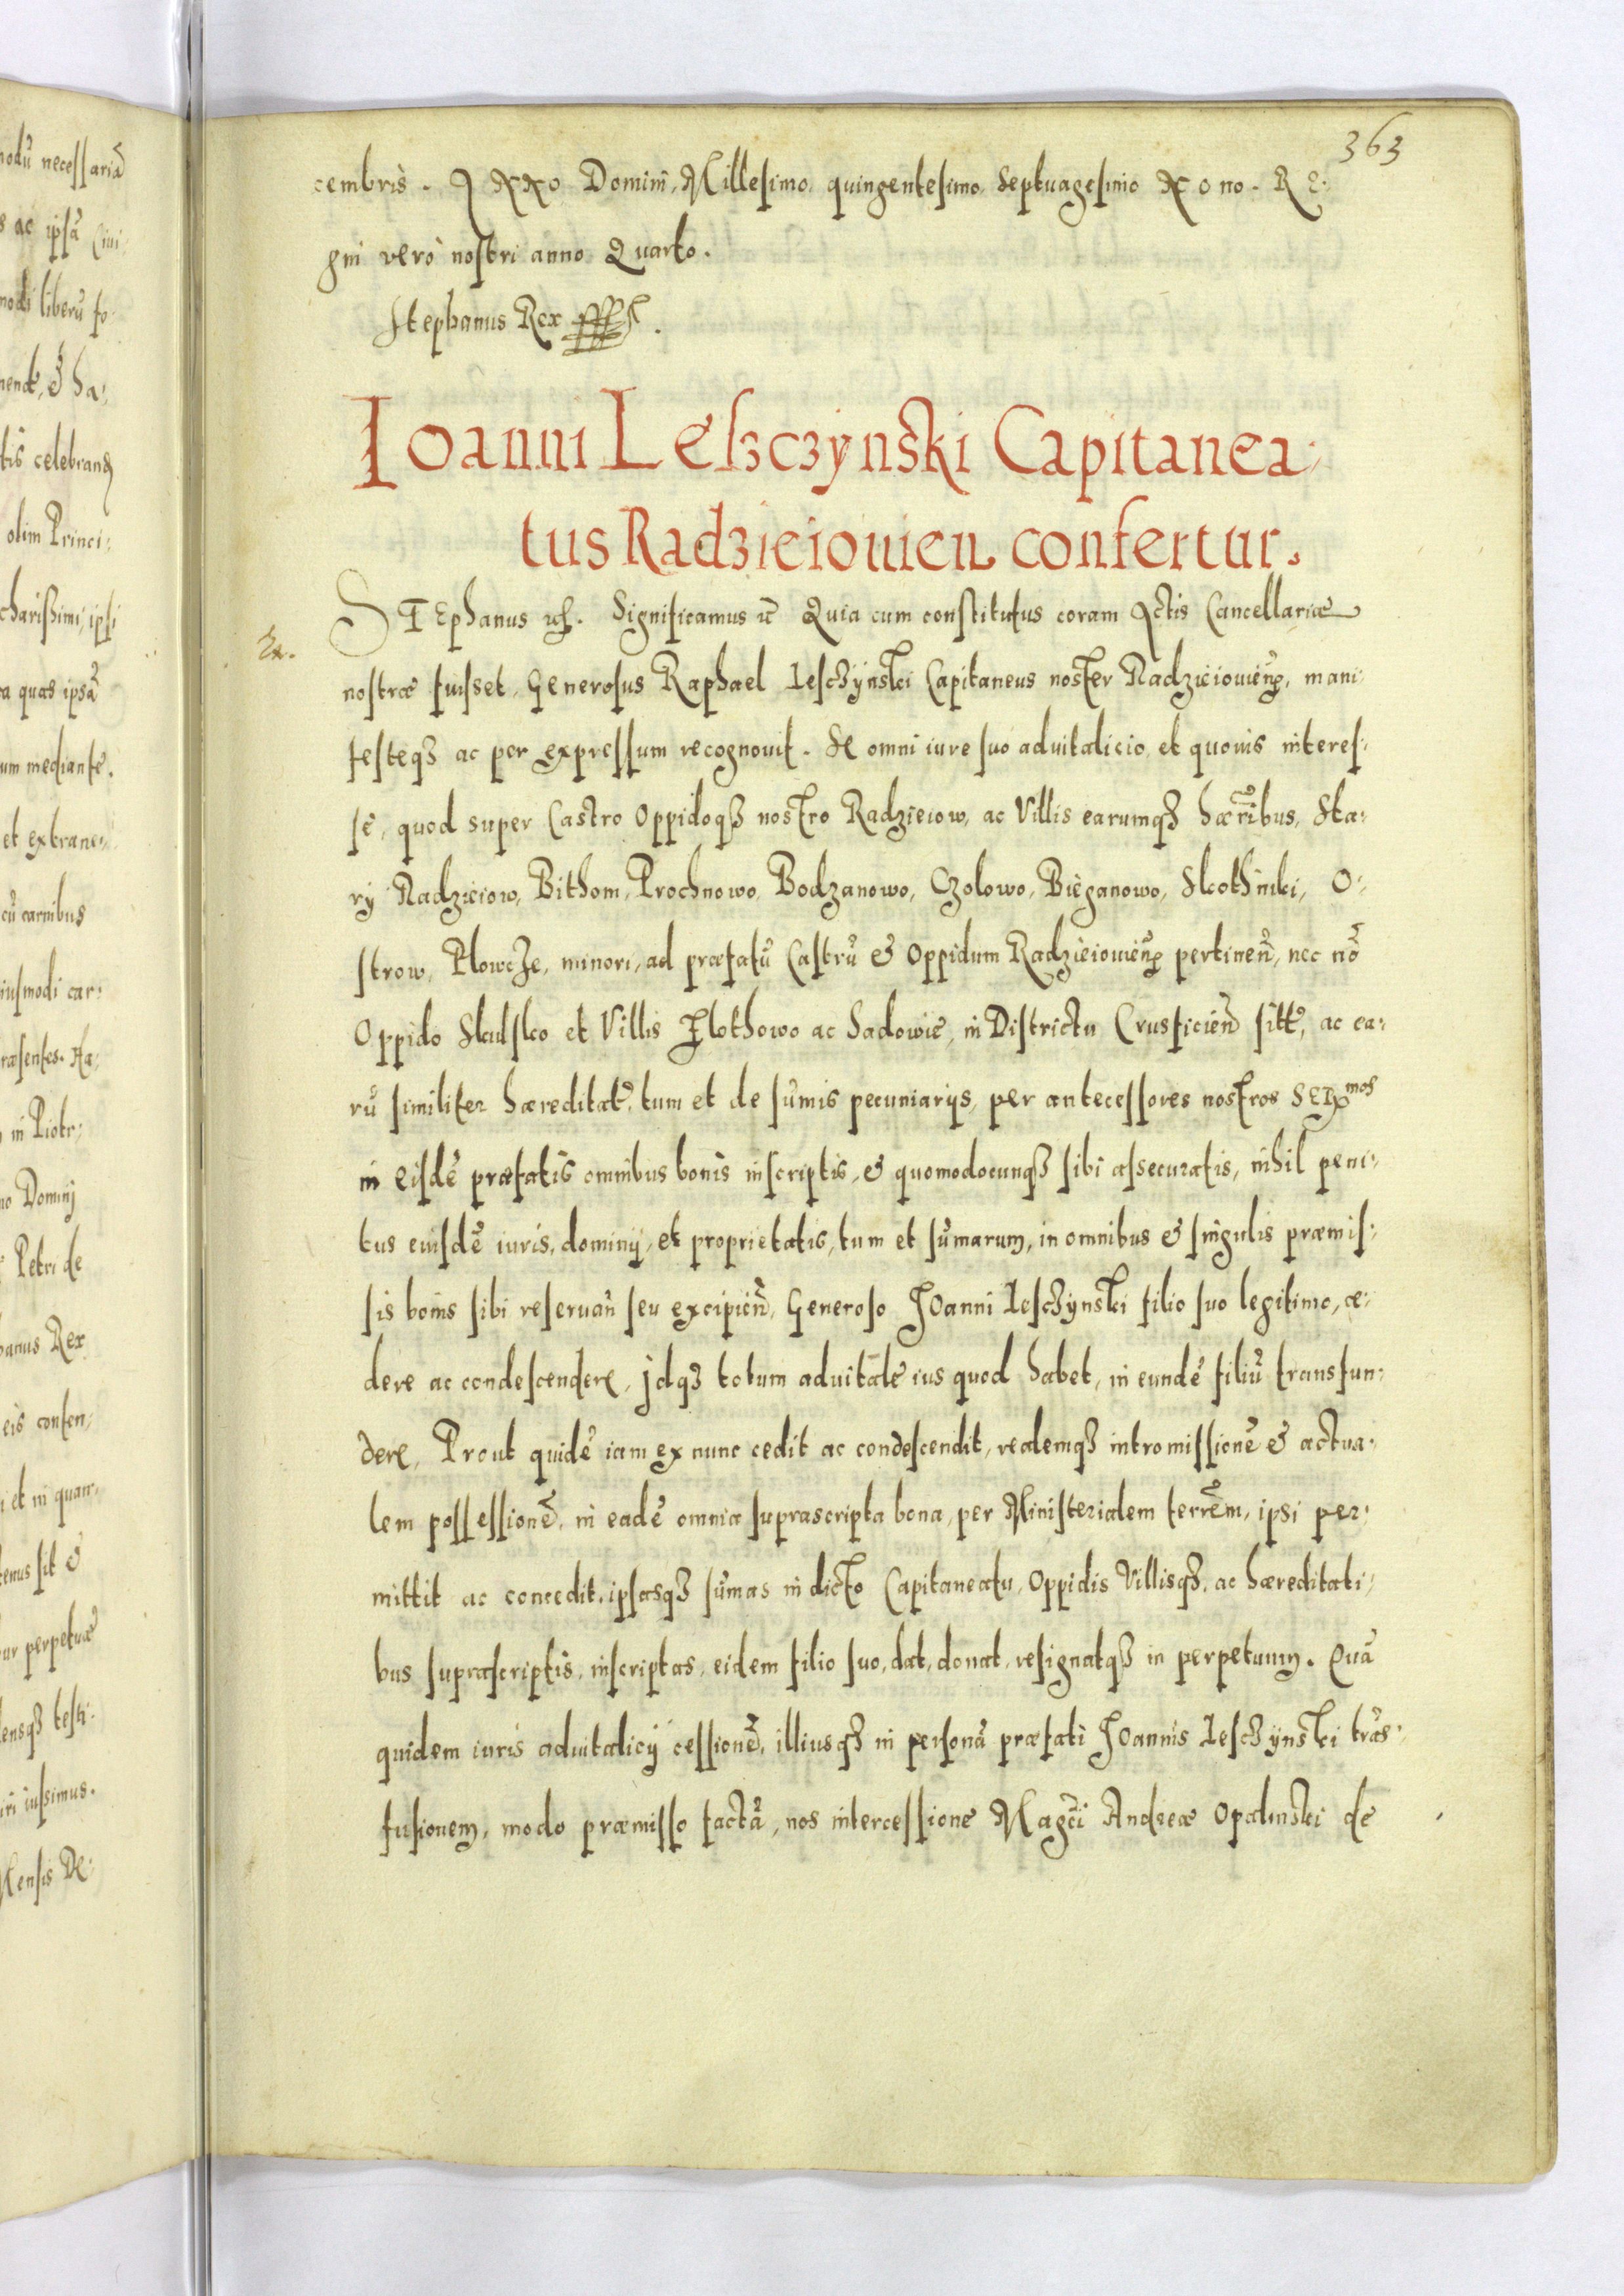 363
cembris. Anno Domini, Millesimo, quingentesimo, Septuagesimo Nono. Re:
gni verò nostri anno Quarto.
Stephanus Rex
Ioanni Leszczynski Capitanea:
tus Radzieiouien confertur.
STEphanus etc. Significamus etc Quia cum constitutus coram Actis Cancellariæ
nostræ fuisset, Generosus Raphael Lesczynski Capitaneus noster Radzieiouien̄, mani:
festeqȝ ac per expressum recognouit. Se omni iure suo aduitalicio, et quouis interes:
se, quod super Castro Oppidoqȝ nostro Radzieiow, ac Villis earumqȝ hær̄ibus, Sta:
rÿ Radzieiow, Bithom, Prochnowo, Bodzanowo, Czolowo, Bieganowo, Skothniki, O:
strow, Plowcze, minori, ad præfatū Castrū & Oppidum Radzieiouien̄ pertinen̄, nec nō
Oppido Skulsko et Villis Plothowo ac Sadowie, in Districtu Crusficien̄ sitt̄, ac ea:
rū similiter hæreditat̄, tum et de sum̄is pecuniarÿs, per antecessores nostros SERmos
in eisdē præfatis omnibus bonis inscriptis, & quomodocunqȝ sibi assecuratis, nihil peni:
tus eiusdē iuris, dominÿ, et proprietatis, tum et sum̄arum, in omnibus & singulis præmis:
sis bonis sibi reseruan̄ seu excipien̄, Generoso Ioanni Lesczynski filio suo legitimo, ce:
dere ac condescendere, idqȝ totum aduitale ius quod habet, in eundē filiū transfun:
dere, Prout quidē iam ex nunc cedit ac condescendit, realemqȝ intromissionē & actua:
lem possessionē, in eadē omnia suprascripta bona, per Ministerialem terrēm, ipsi per:
mittit ac concedit, ipsasqȝ sum̄as in dicto Capitaneatu, Oppidis Villisqȝ, ac hæreditati:
bus suprascriptis, inscriptas, eidem filio suo, dat, donat, resignatqȝ in perpetuum. Quā
quidem iuris aduitalicÿ cessionē, illiusqȝ in personā præfati Ioannis Lesczynski trās:
fusionem, modo præmisso factā, nos intercessione Magci Andreæ Opalinski de